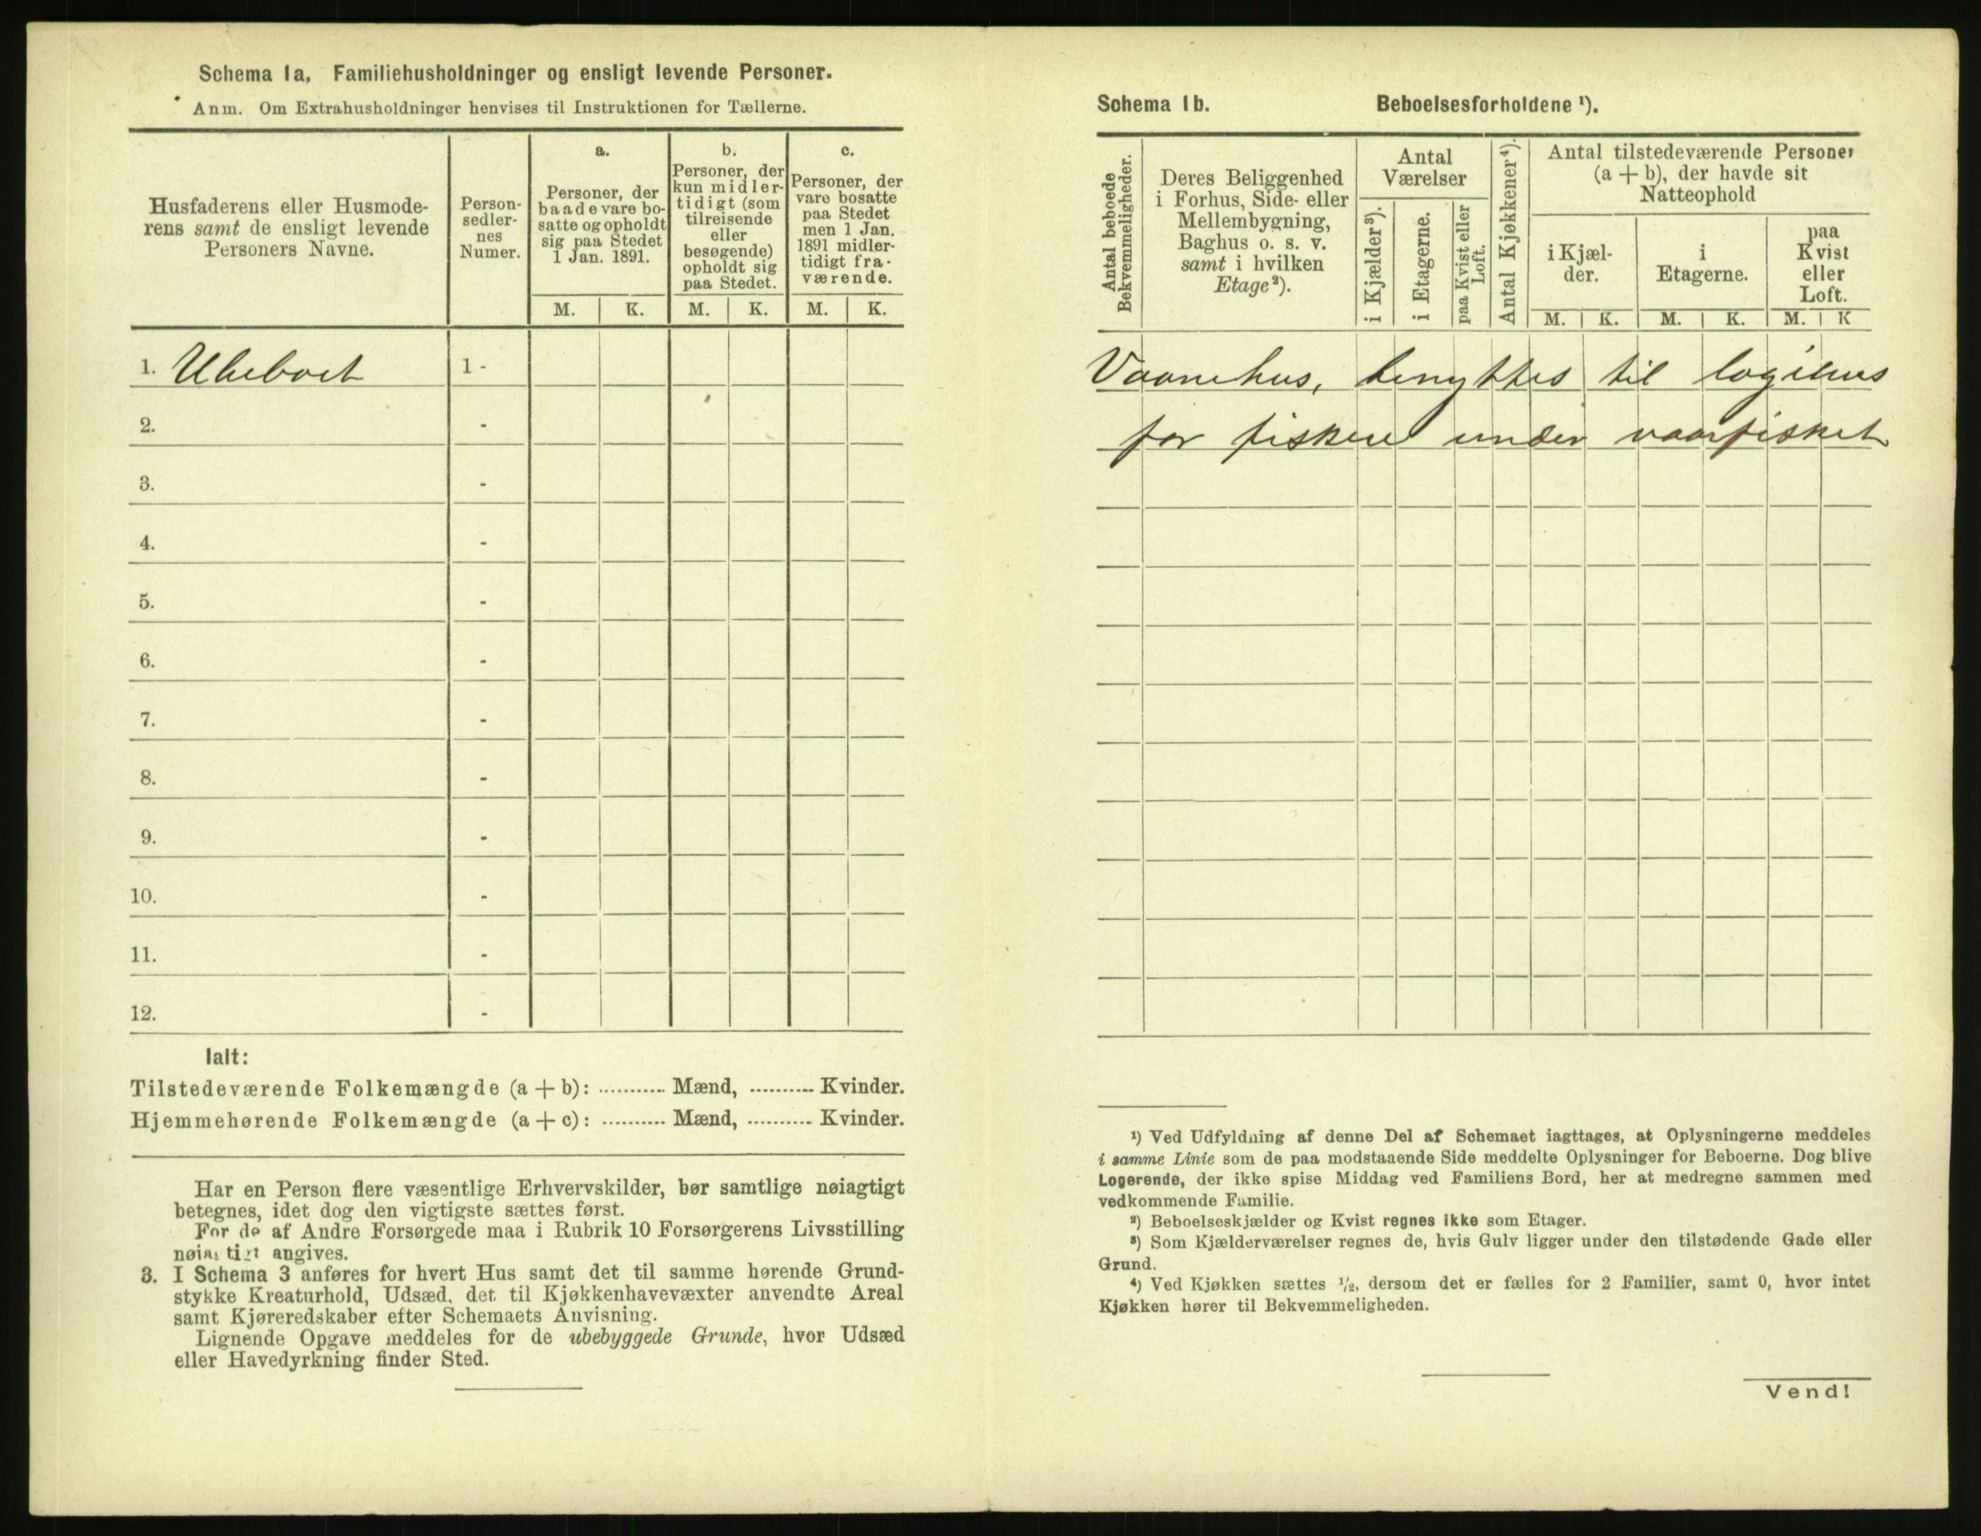 Schema 1a. Familiehusholdninger og ensligt levende Personer.
Anm. Om Extrahusholdninger henvises til Instruktionen for Tællerne.
Husfaderens eller Husmode-
rens samt de ensligt levende
Personers Navne.
Person-
sedler-
nes
Numer.
a.
Personer, der
baade vare bo-
satte og opholdt
sig paa Stedet
1 Jan. 1891.
b.
Personer, der
kun midler-
tidigt (som
tilreisende
eller
besøgende)
opholdt sig
paa Stedet.
c.
Personer, der
vare bosatte
paa Stedet
men 1 Jan.
1891 midler-
tidigt fra-
værende.
M. K. M. K. M. K.
1. Ubeboet 1 -
2. -
3. -
4. -
5. -
6. -
7. -
8. -
9. -
10. -
11. -
12. -
Ialt:
Tilstedeværende Folkemængde (a + b): ........... Mænd, .......... Kvinder.
Hjemmehørende Folkemængde (a + c): ........... Mænd, .......... Kvinder.
Har en Person flere væsentlige Erhvervskilder, bør samtlige nøiagtigt
betegnes, idet dog den vigtigste sættes først.
For de af Andre Forsørgede maa i Rubrik 10 Forsørgerens Livsstilling
nøiagtigt angives.
3. I Schema 3 anføres for hvert Hus samt det til samme hørende Grund-
stykke Kreaturhold, Udsæd, det til Kjøkkenhavevæxter anvendte Areal
samt Kjøreredskaber efter Schemaets Anvisning.
Lignende Opgave meddeles for de ubebyggede Grunde, hvor Udsæd
eller Havedyrkning finder Sted.
Schema 1b. Beboelsesforholdene ¹).
Antal beboede
Bekvemmeligheder.
Deres Beliggenhed
i Forhus, Side- eller
Mellembygning,
Baghus o. s. v.
samt i hvilken
Etage²).
Antal
Værelser
i Kjælder³).
i Etagerne.
paa Kvist eller
Loft.
Antal Kjøkkener⁴).
Antal tilstedeværende Personer
(a + b), der havde sit
Natteophold
i Kjæl-
der.
i
Etagerne.
paa
Kvist
eller
Loft.
M. K. M. K. M. K
Vaanehus, benyttes til logihus
for fiskere under vaarfisket
¹) Ved Udfyldning af denne Del af Schemaet iagttages, at Oplysningerne meddeles
i samme Linie som de paa modstaaende Side meddelte Oplysninger for Beboerne. Dog blive
Logerende, der ikke spise Middag ved Familiens Bord, her at medregne sammen med
vedkommende Familie.
²) Beboelseskjælder og Kvist regnes ikke som Etager.
³) Som Kjælderværelser regnes de, hvis Gulv ligger under den tilstødende Gade eller
Grund.
⁴) Ved Kjøkken sættes ¹/₂, dersom det er fælles for 2 Familier, samt 0, hvor intet
Kjøkken hører til Bekvemmeligheden.
Vend!